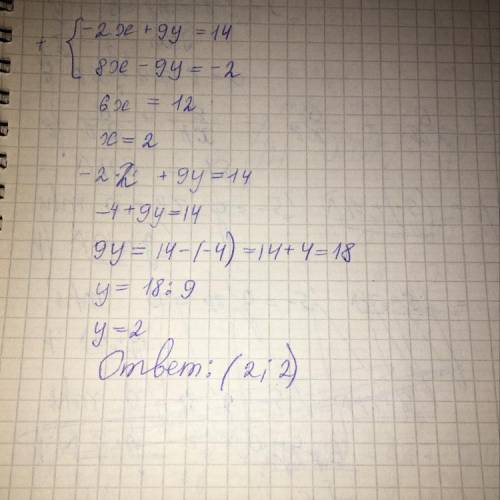 + { -2x + 9y = 14
8x - 9y = -2
6x = 12
x = 2
-2·2 + 9y = 14
-4 + 9y = 14
9y = 14 - (-4) = 14 + 4 = 18
y = 18 : 9
y = 2
Ответ: (2; 2)